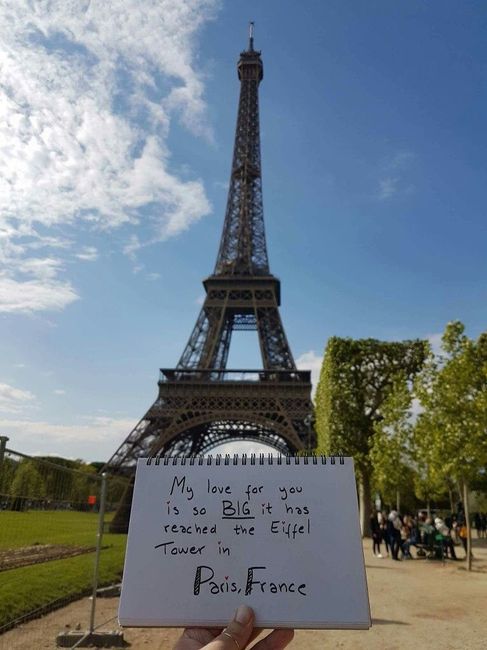 My love for you
is so BIG it has
reached the Eiffel
Tower in
Paris, France